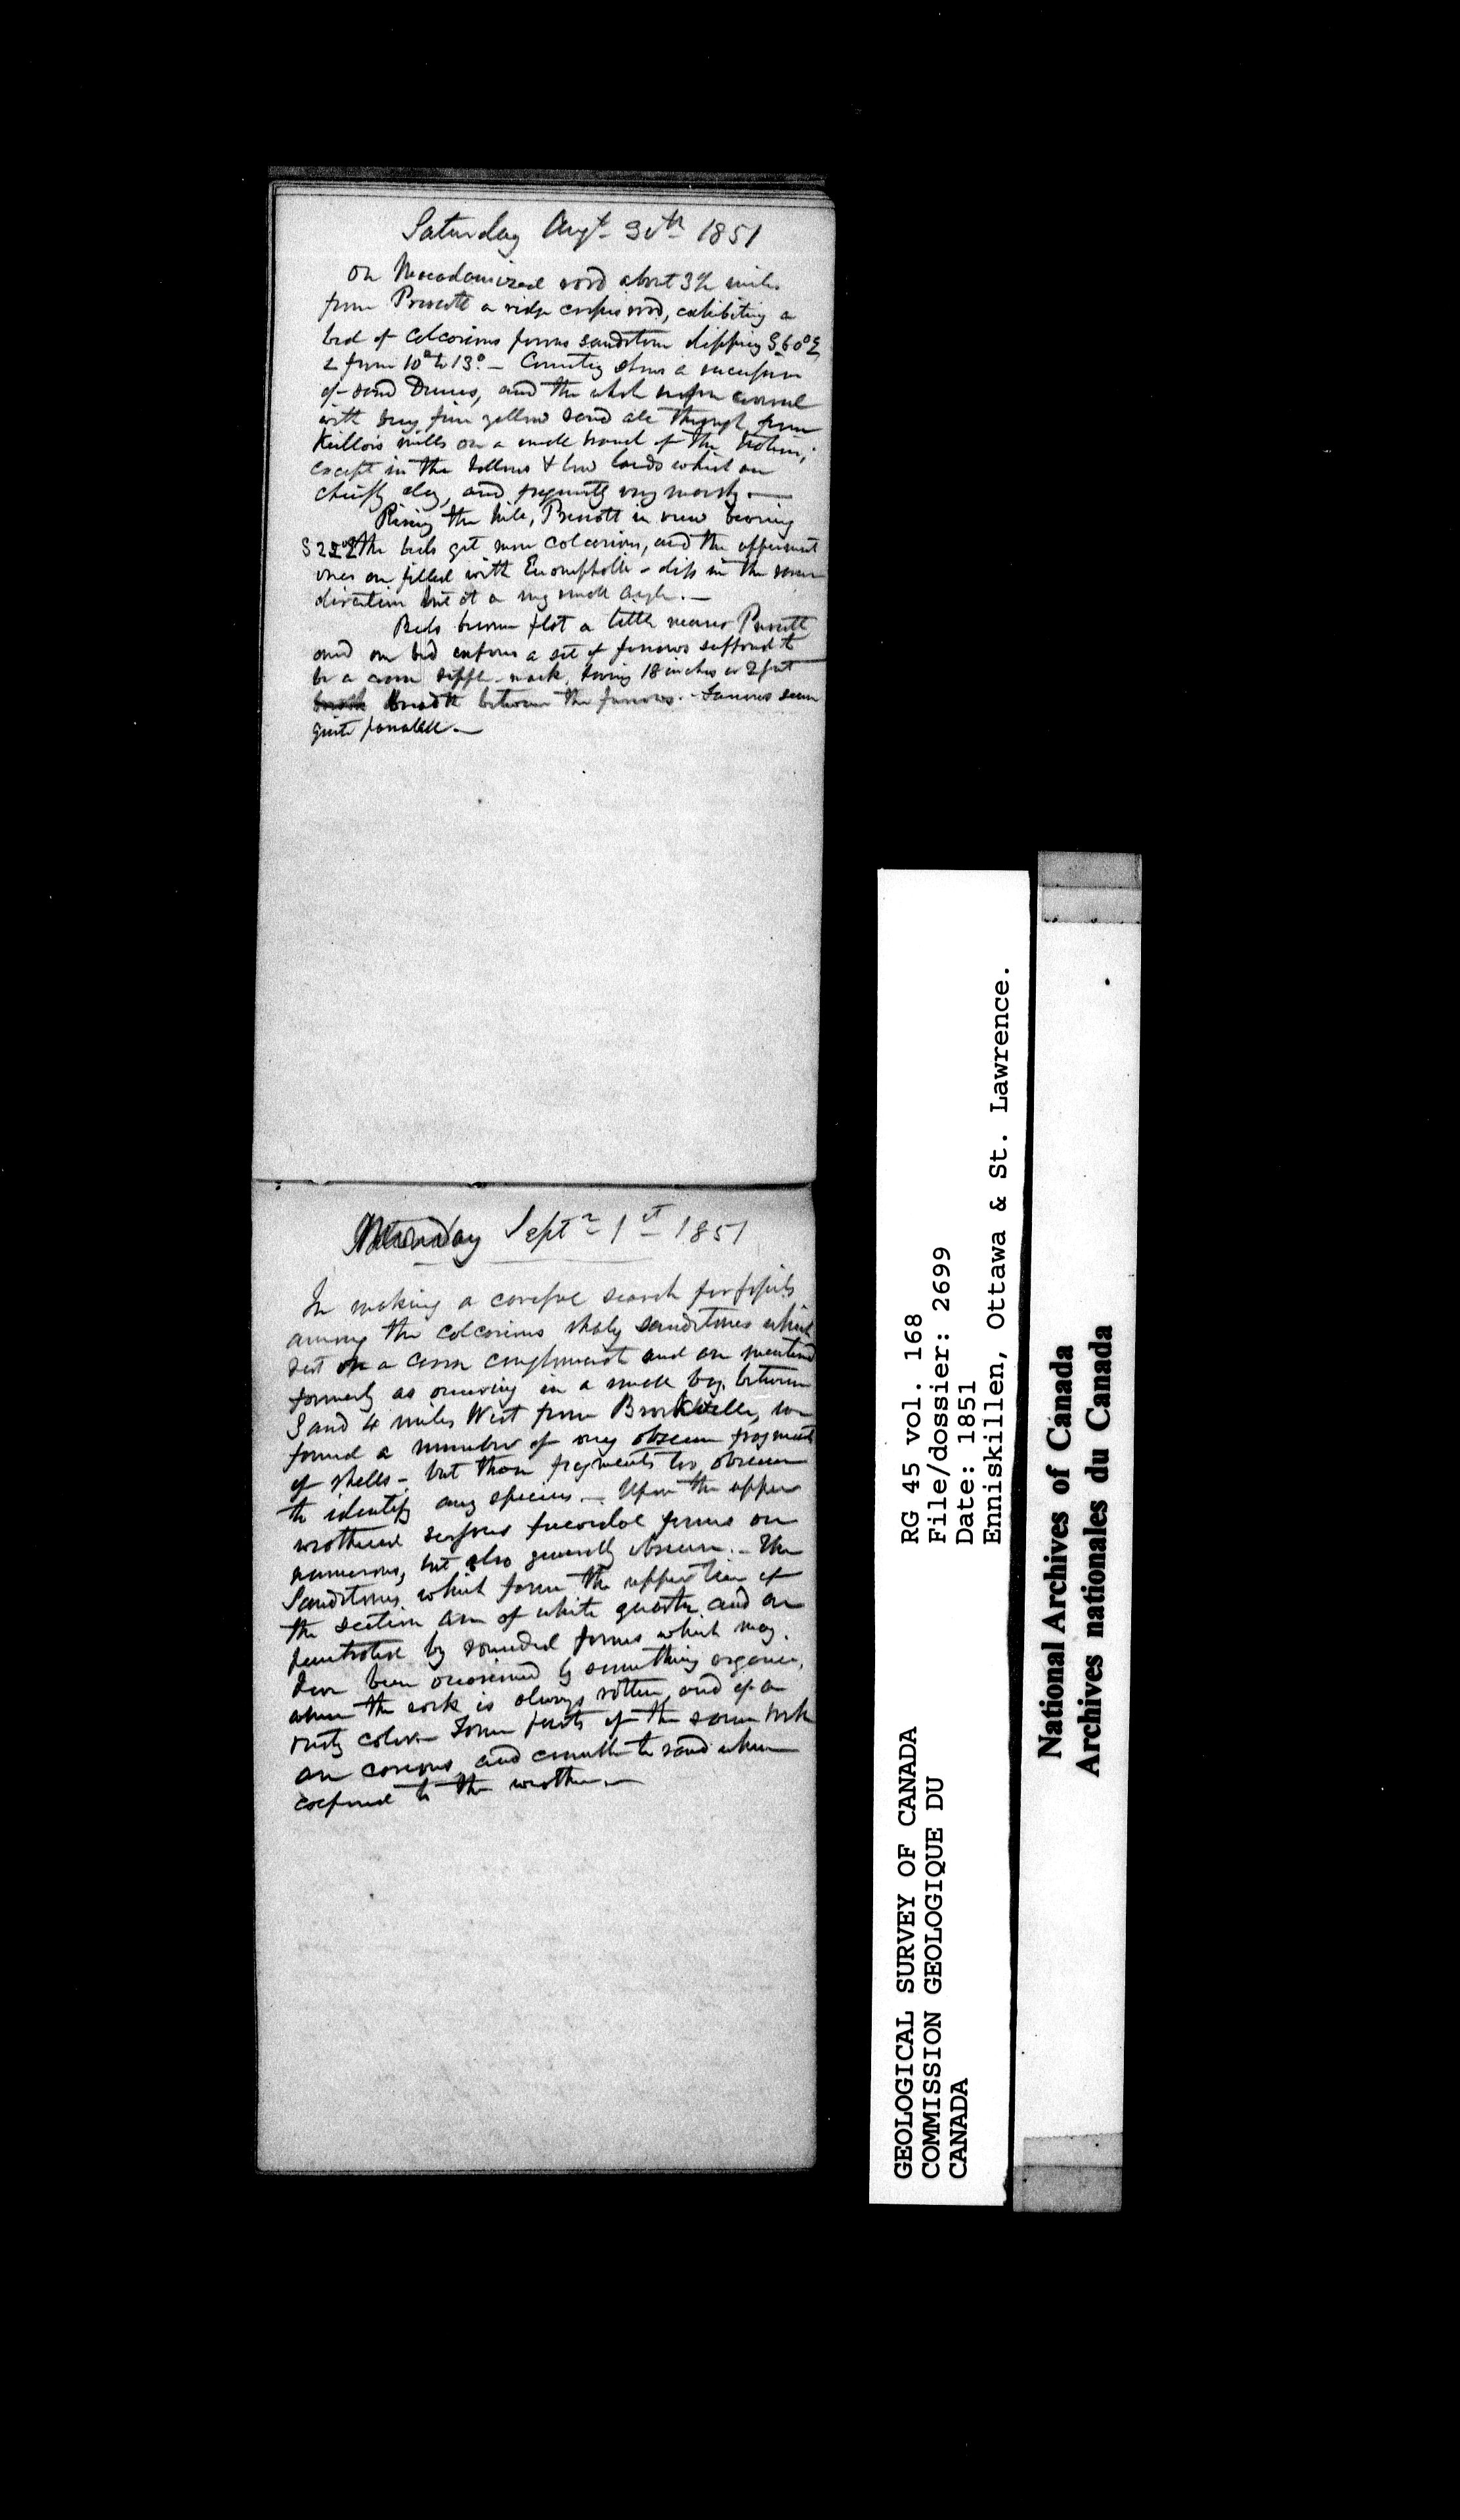 Saturday Augt 30th 1851
On Macadamized road about 3½ miles
from Prescott a ridge crosses road, exhibiting a
bed of calcareous porous sandstone dipping S 60° E
∠ from 10° to 13°. — Country shows a succession
of sand Dunes, and the whole surface covered
with very fine yellow sand all through from
mills on a small branch of the
except in the hollows & low lands which are
chiefly clay, and frequently very marshy. —
Rising the hill, Prescott in view bearing
S 22° E the beds get more calcareous, and the uppermost
ones are filled with Euomphalli - dip in the same
direction but at a very small angle. —
Beds become flat a little nearer Prescott
and one bed exposes a set of furrows supposed to
be a coarse ripple-mark, having 18 inches or 2 feet
breadth between the furrows. - Furrows seem
quite parallell. —
Monday Septr 1st 1851
In making a careful search for fossils
among the calcareous shaly sandstones which
rest on a coarse conglomerate and are mentioned
formerly as occurring in a small bay, between
3 and 4 miles West from Brockville, we
found a number of very obscure fragments
of shells - but those fragments too obscure
to identify any species. — Upon the upper
weathered surfaces fucoidal forms are
numerous, but also generally obscure. - The
Sandstones which form the upper tier of
the section are of white quartz and are
penetrated by rounded forms which may
have been occasioned by something organic,
where the rock is always rotten, and of a
rusty color - Some parts of the same rock
are and crumble to sand when
exposed to the weather. —
RG 45 vol. 168
File/dossier: 2699
Date: 1851
Enniskillen, Ottawa & St. Lawrence.
GEOLOGICAL SURVEY OF CANADA
COMMISSION GEOLOGIQUE DU
CANADA
National Archives of Canada
Archives nationales du Canada